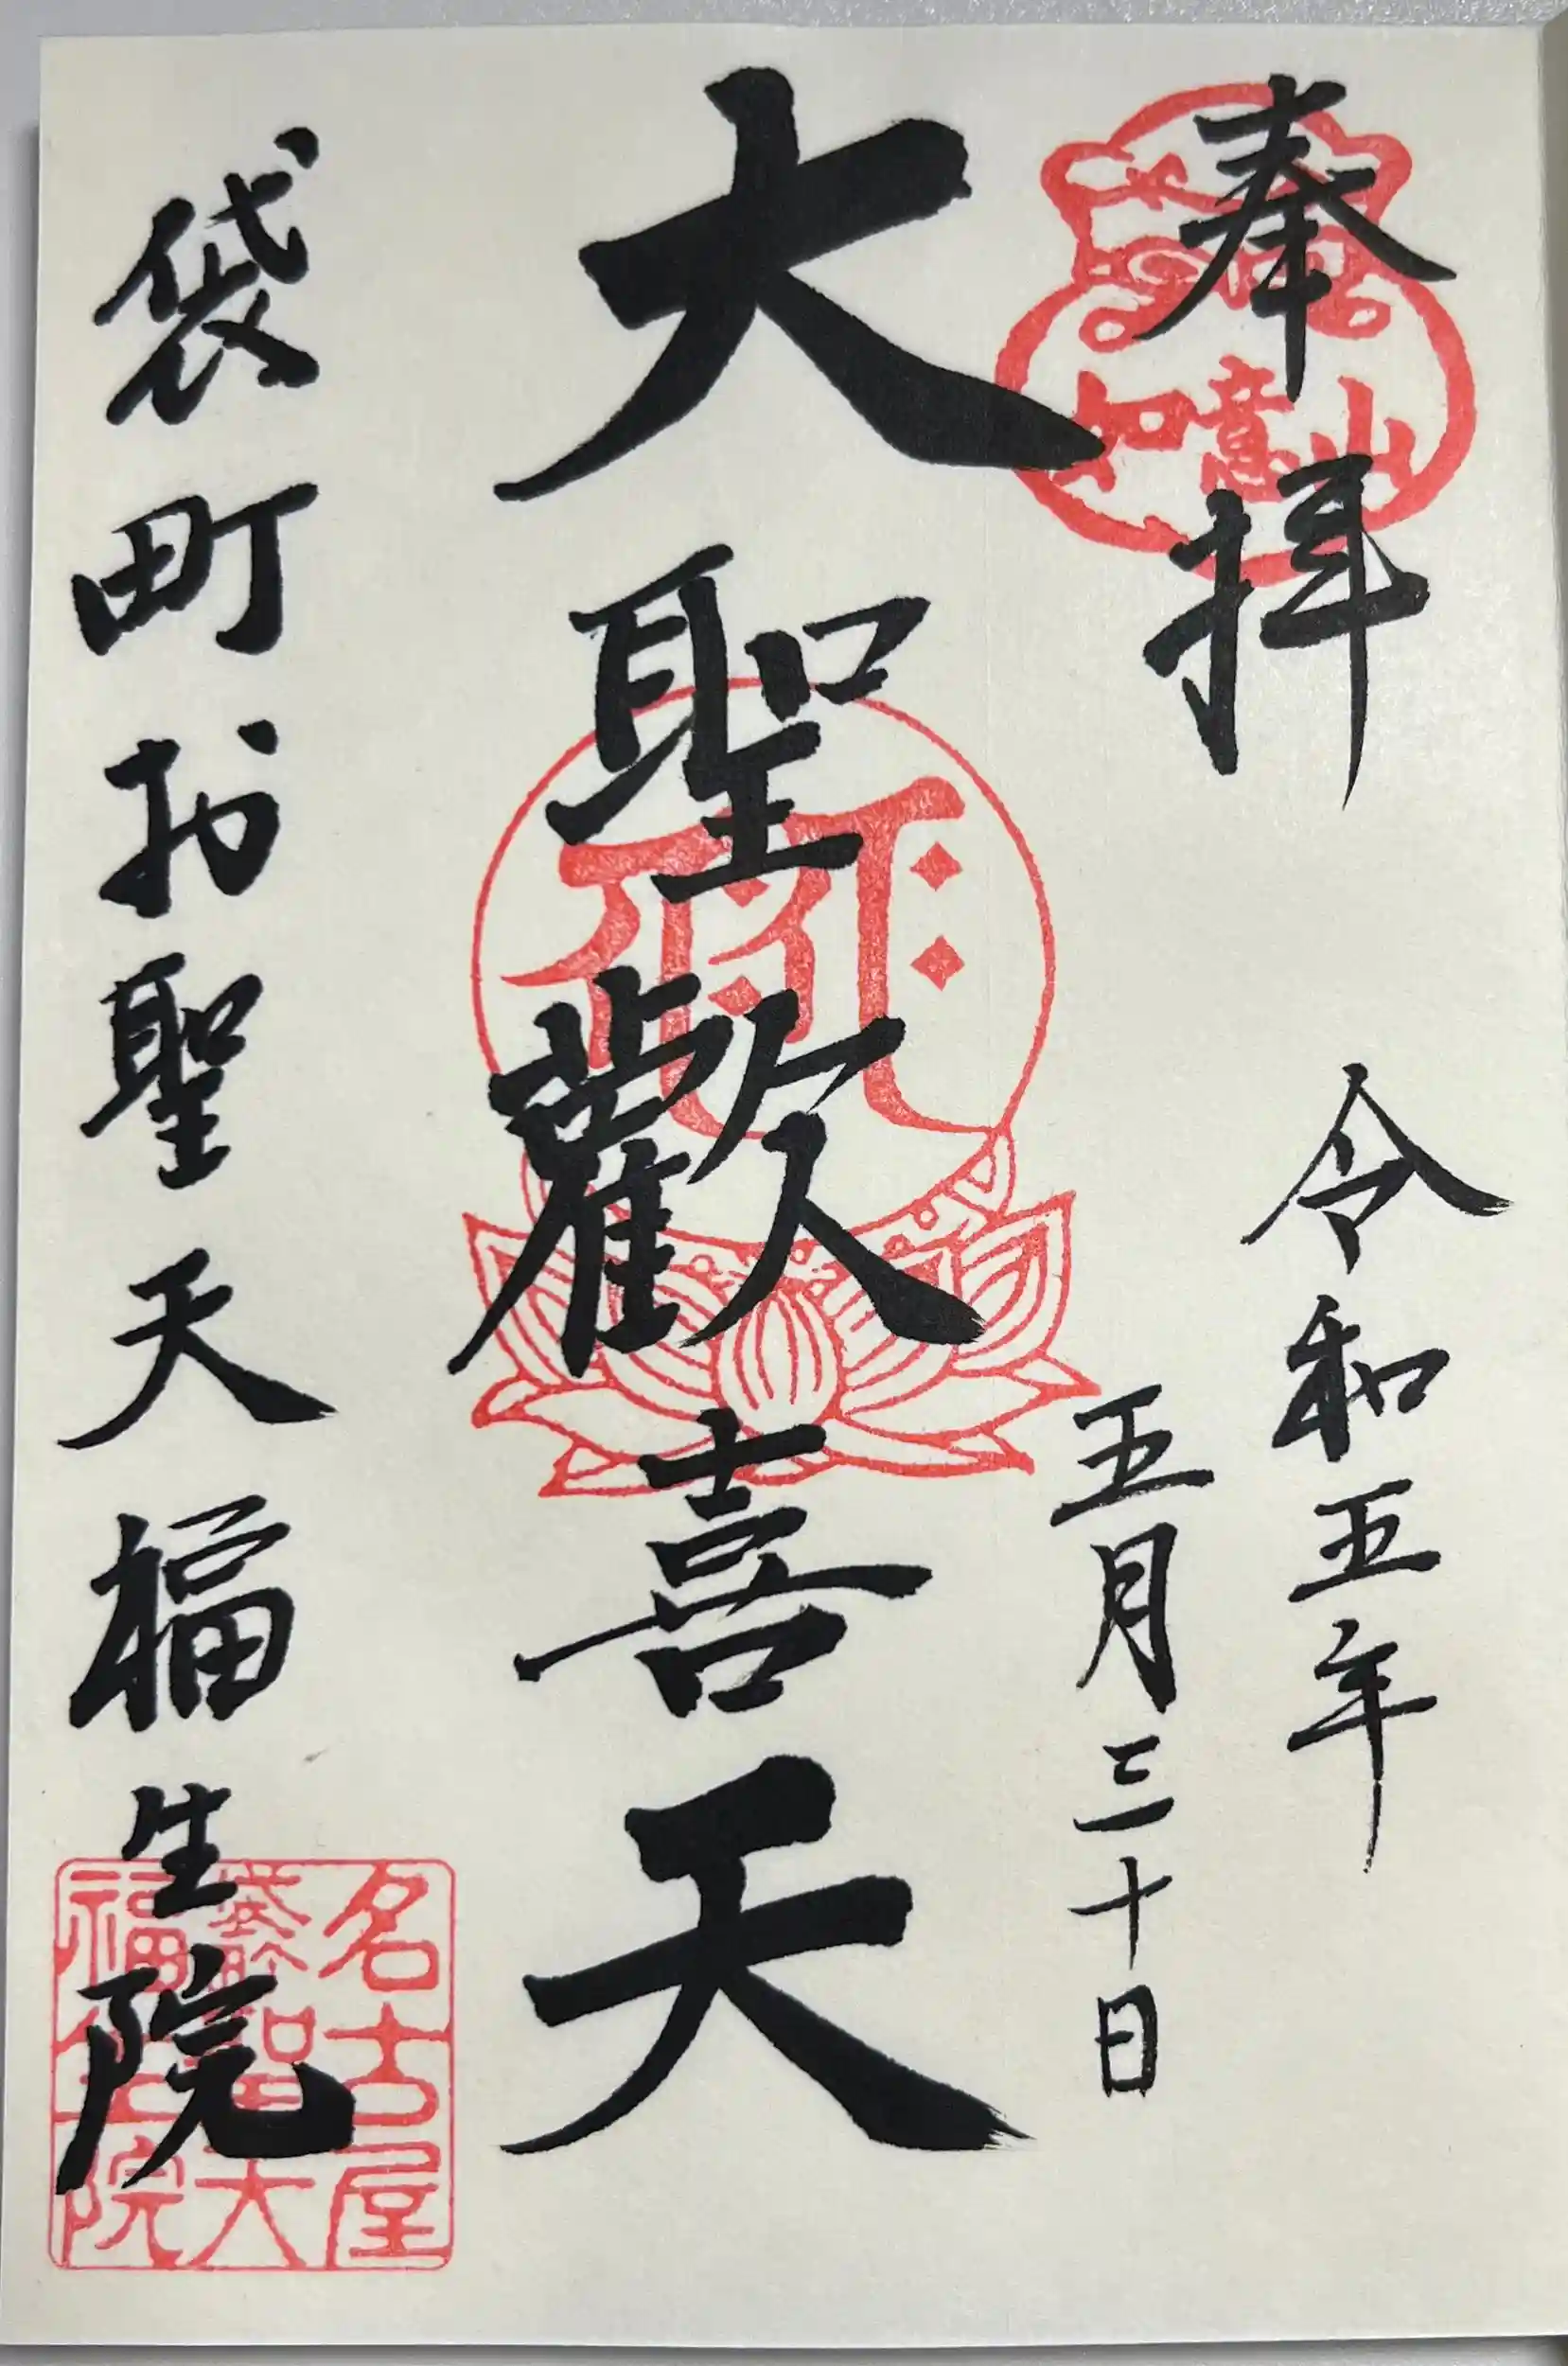 奉拝
如意山
令和五年
五月三十日
大聖歡喜天
袋町お聖天福生院
名古屋
福生院